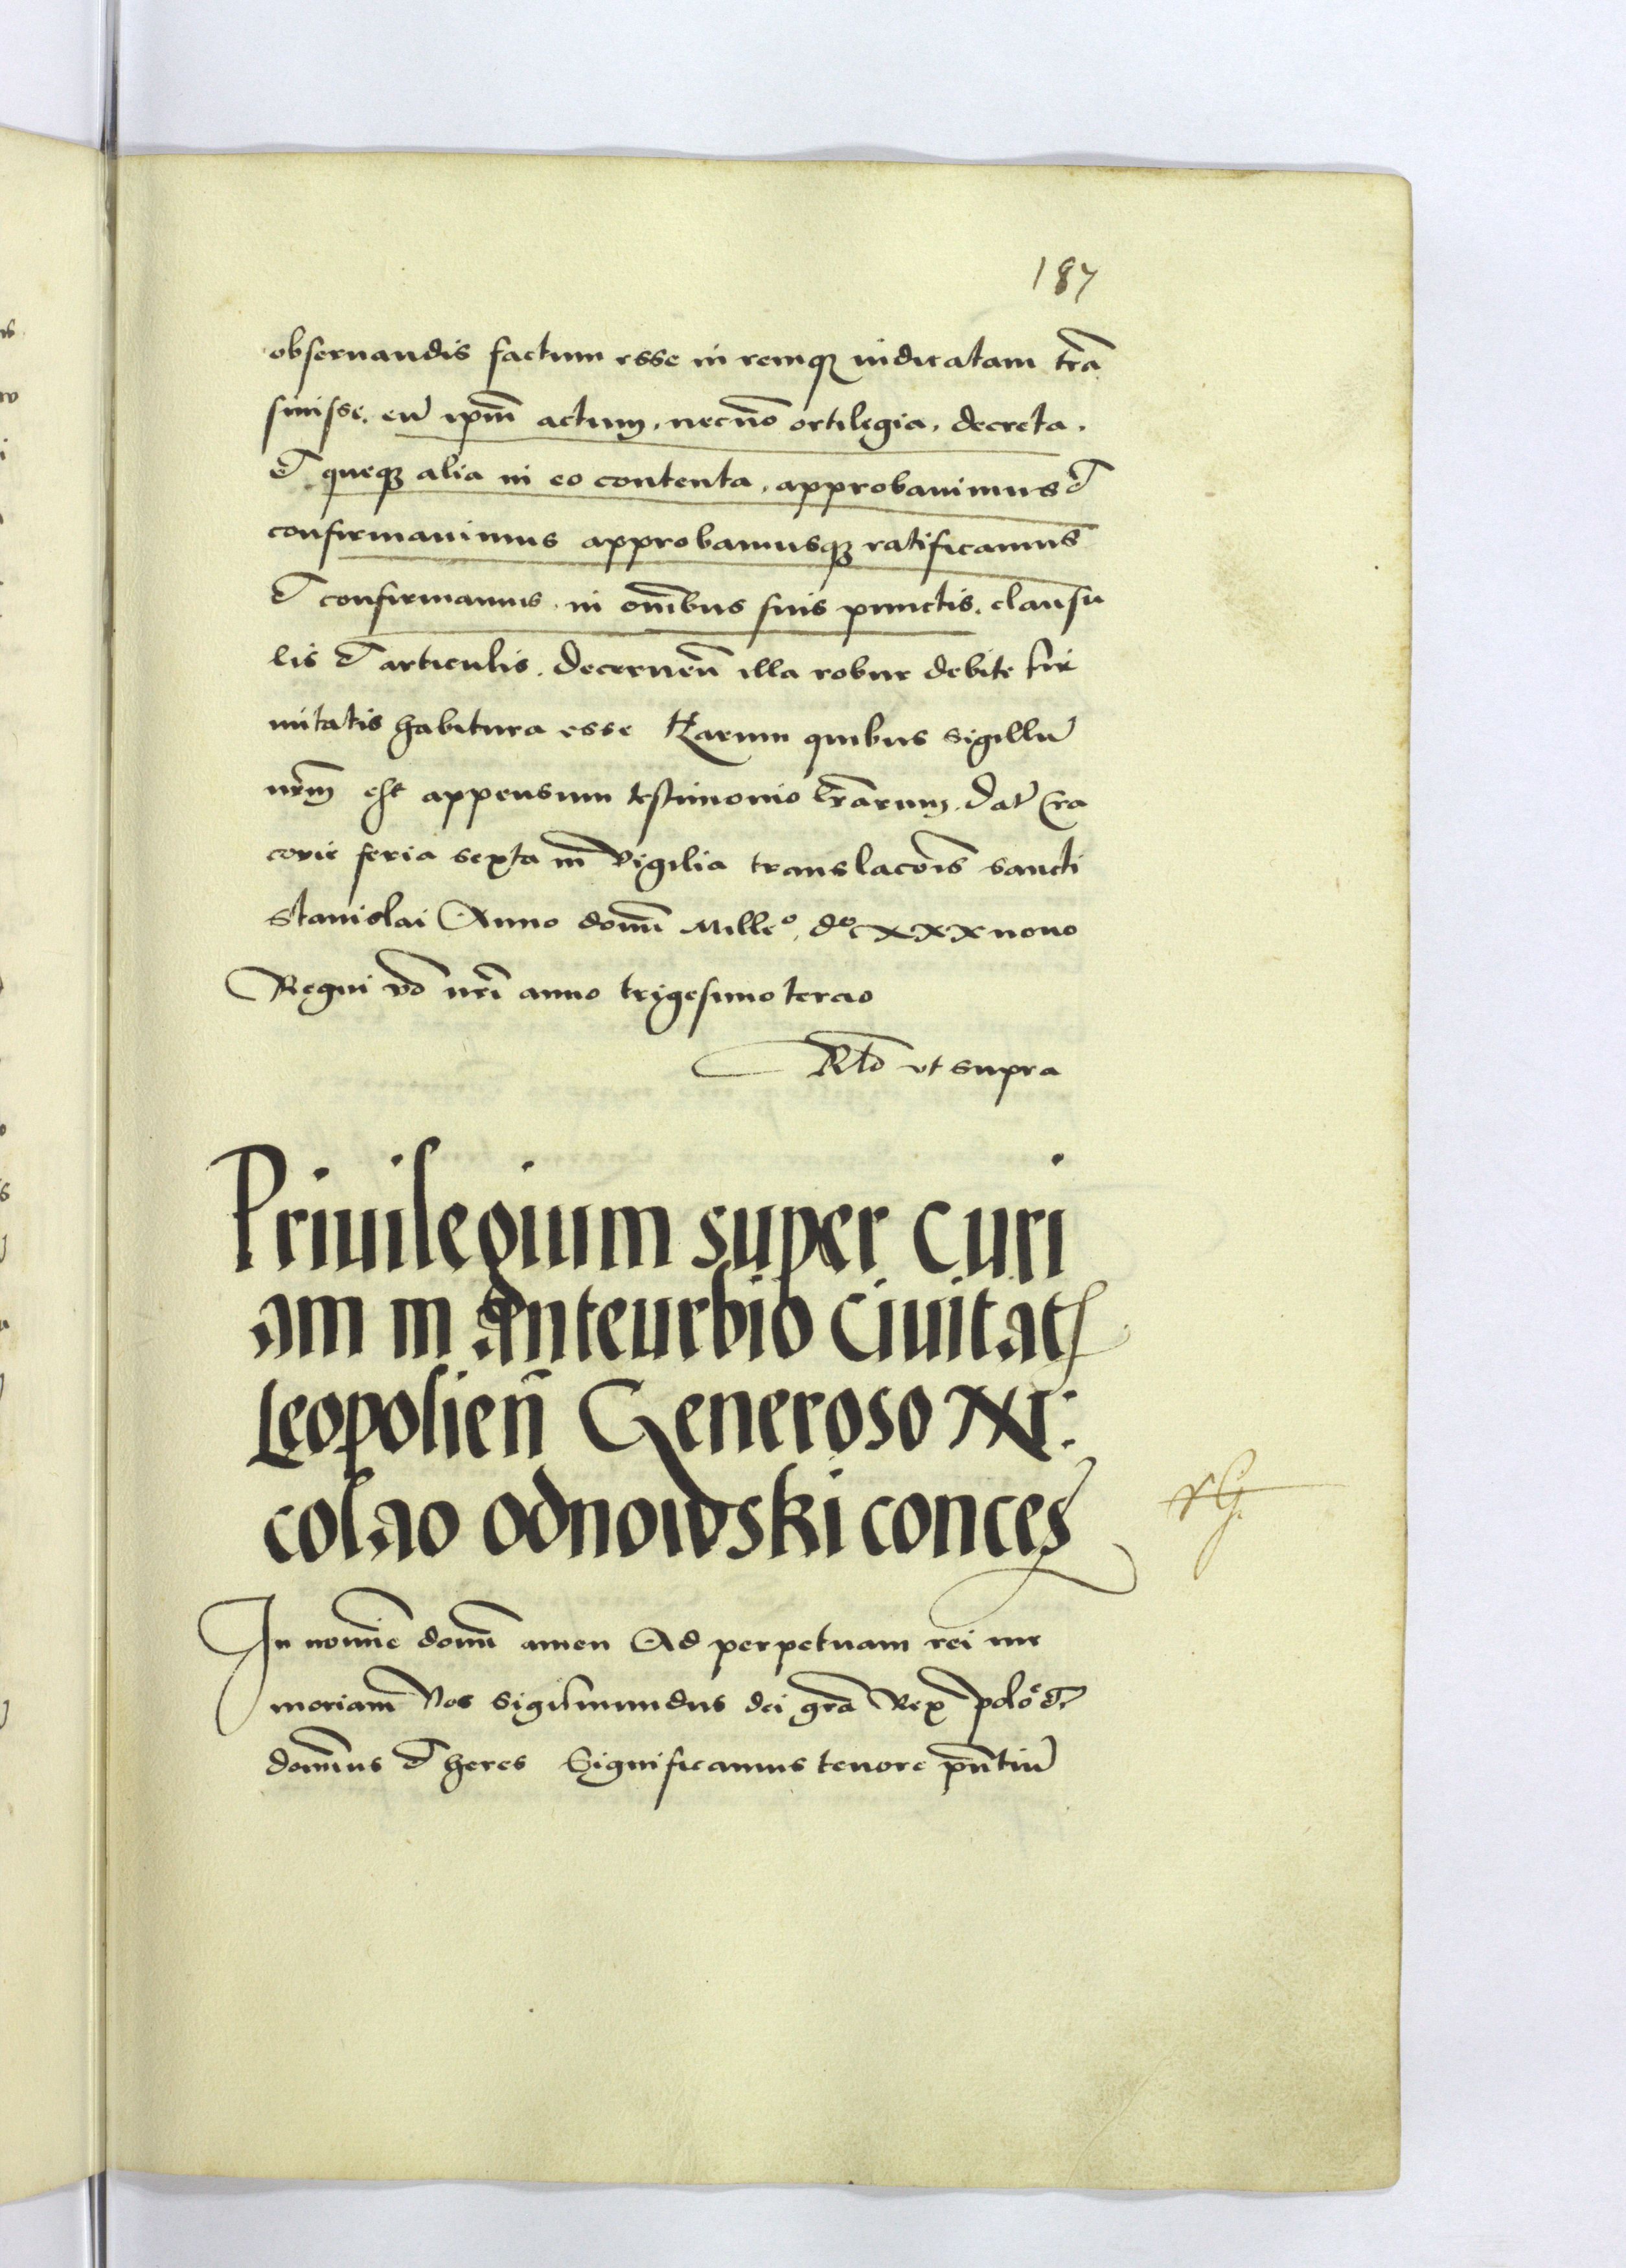 187
obseruandis factum esse in remq3 iudicatam trã
siuisse. eũ ipm̃ actum, necnõ ortilegia, decreta,
et queq3 alia in eo contenta, approbauimus et
confirmauimus approbamusq3 ratificamus
et confirmamus, in om̃ibus suis punctis, clausu
lis et articulis. Decerneñ illa robur debite fir
mitatis habitura esse Harum quibus sigillũ
nr̃m est appensum testimonio lr̃arum. Dat̃ Cra
couie feria sexta in vigilia translacõis sancti
Stanislai Anno domi Mill̃eº. dºc xxx nono
Regni võ nr̃i anno trigesimo tercio
Rlõ vt supra
Priuilegium super Curi
am in Anteurbio Ciuitat̃
Leopolieñ Generoso Ni:
colao Odnowski conces
In nomĩe domi amen Ad perpetuam rei me
moriam Nos Sigismundus dei grã Rex Polõe etc
dom̃us et heres Significamus tenore pñtiũ